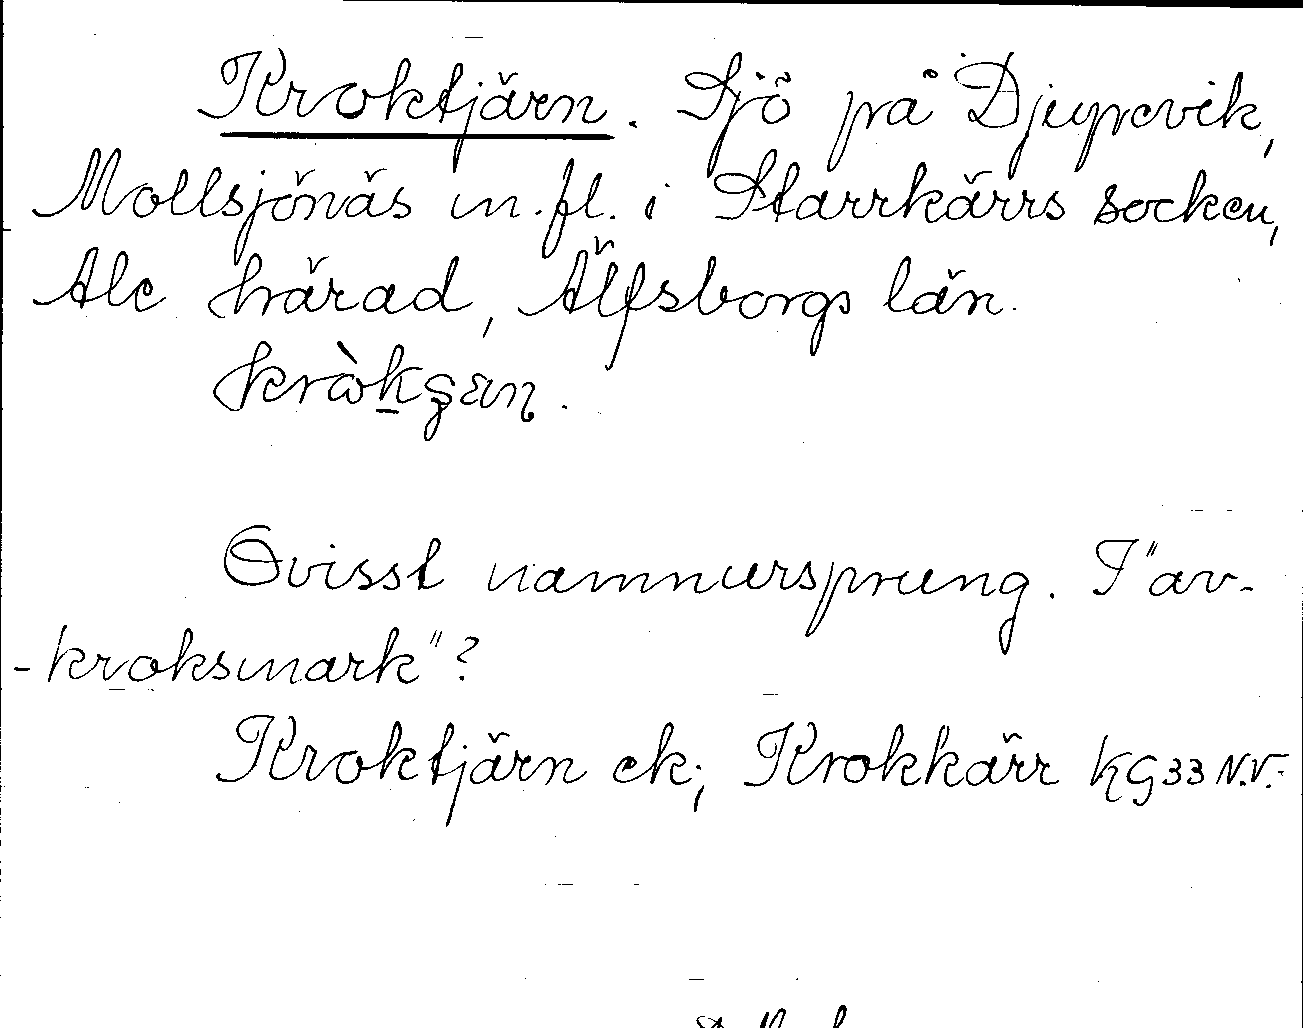 Kroktjärn. Sjö på Djupevik,
Mollsjönäs m.fl. i Starrkärrs socken,
Ale härad, Älfsborgs län.
Ovisst namnursprung. I "av-
-kroksmark"?
Kroktjärn ek; Krokkärr KG33 N.V.